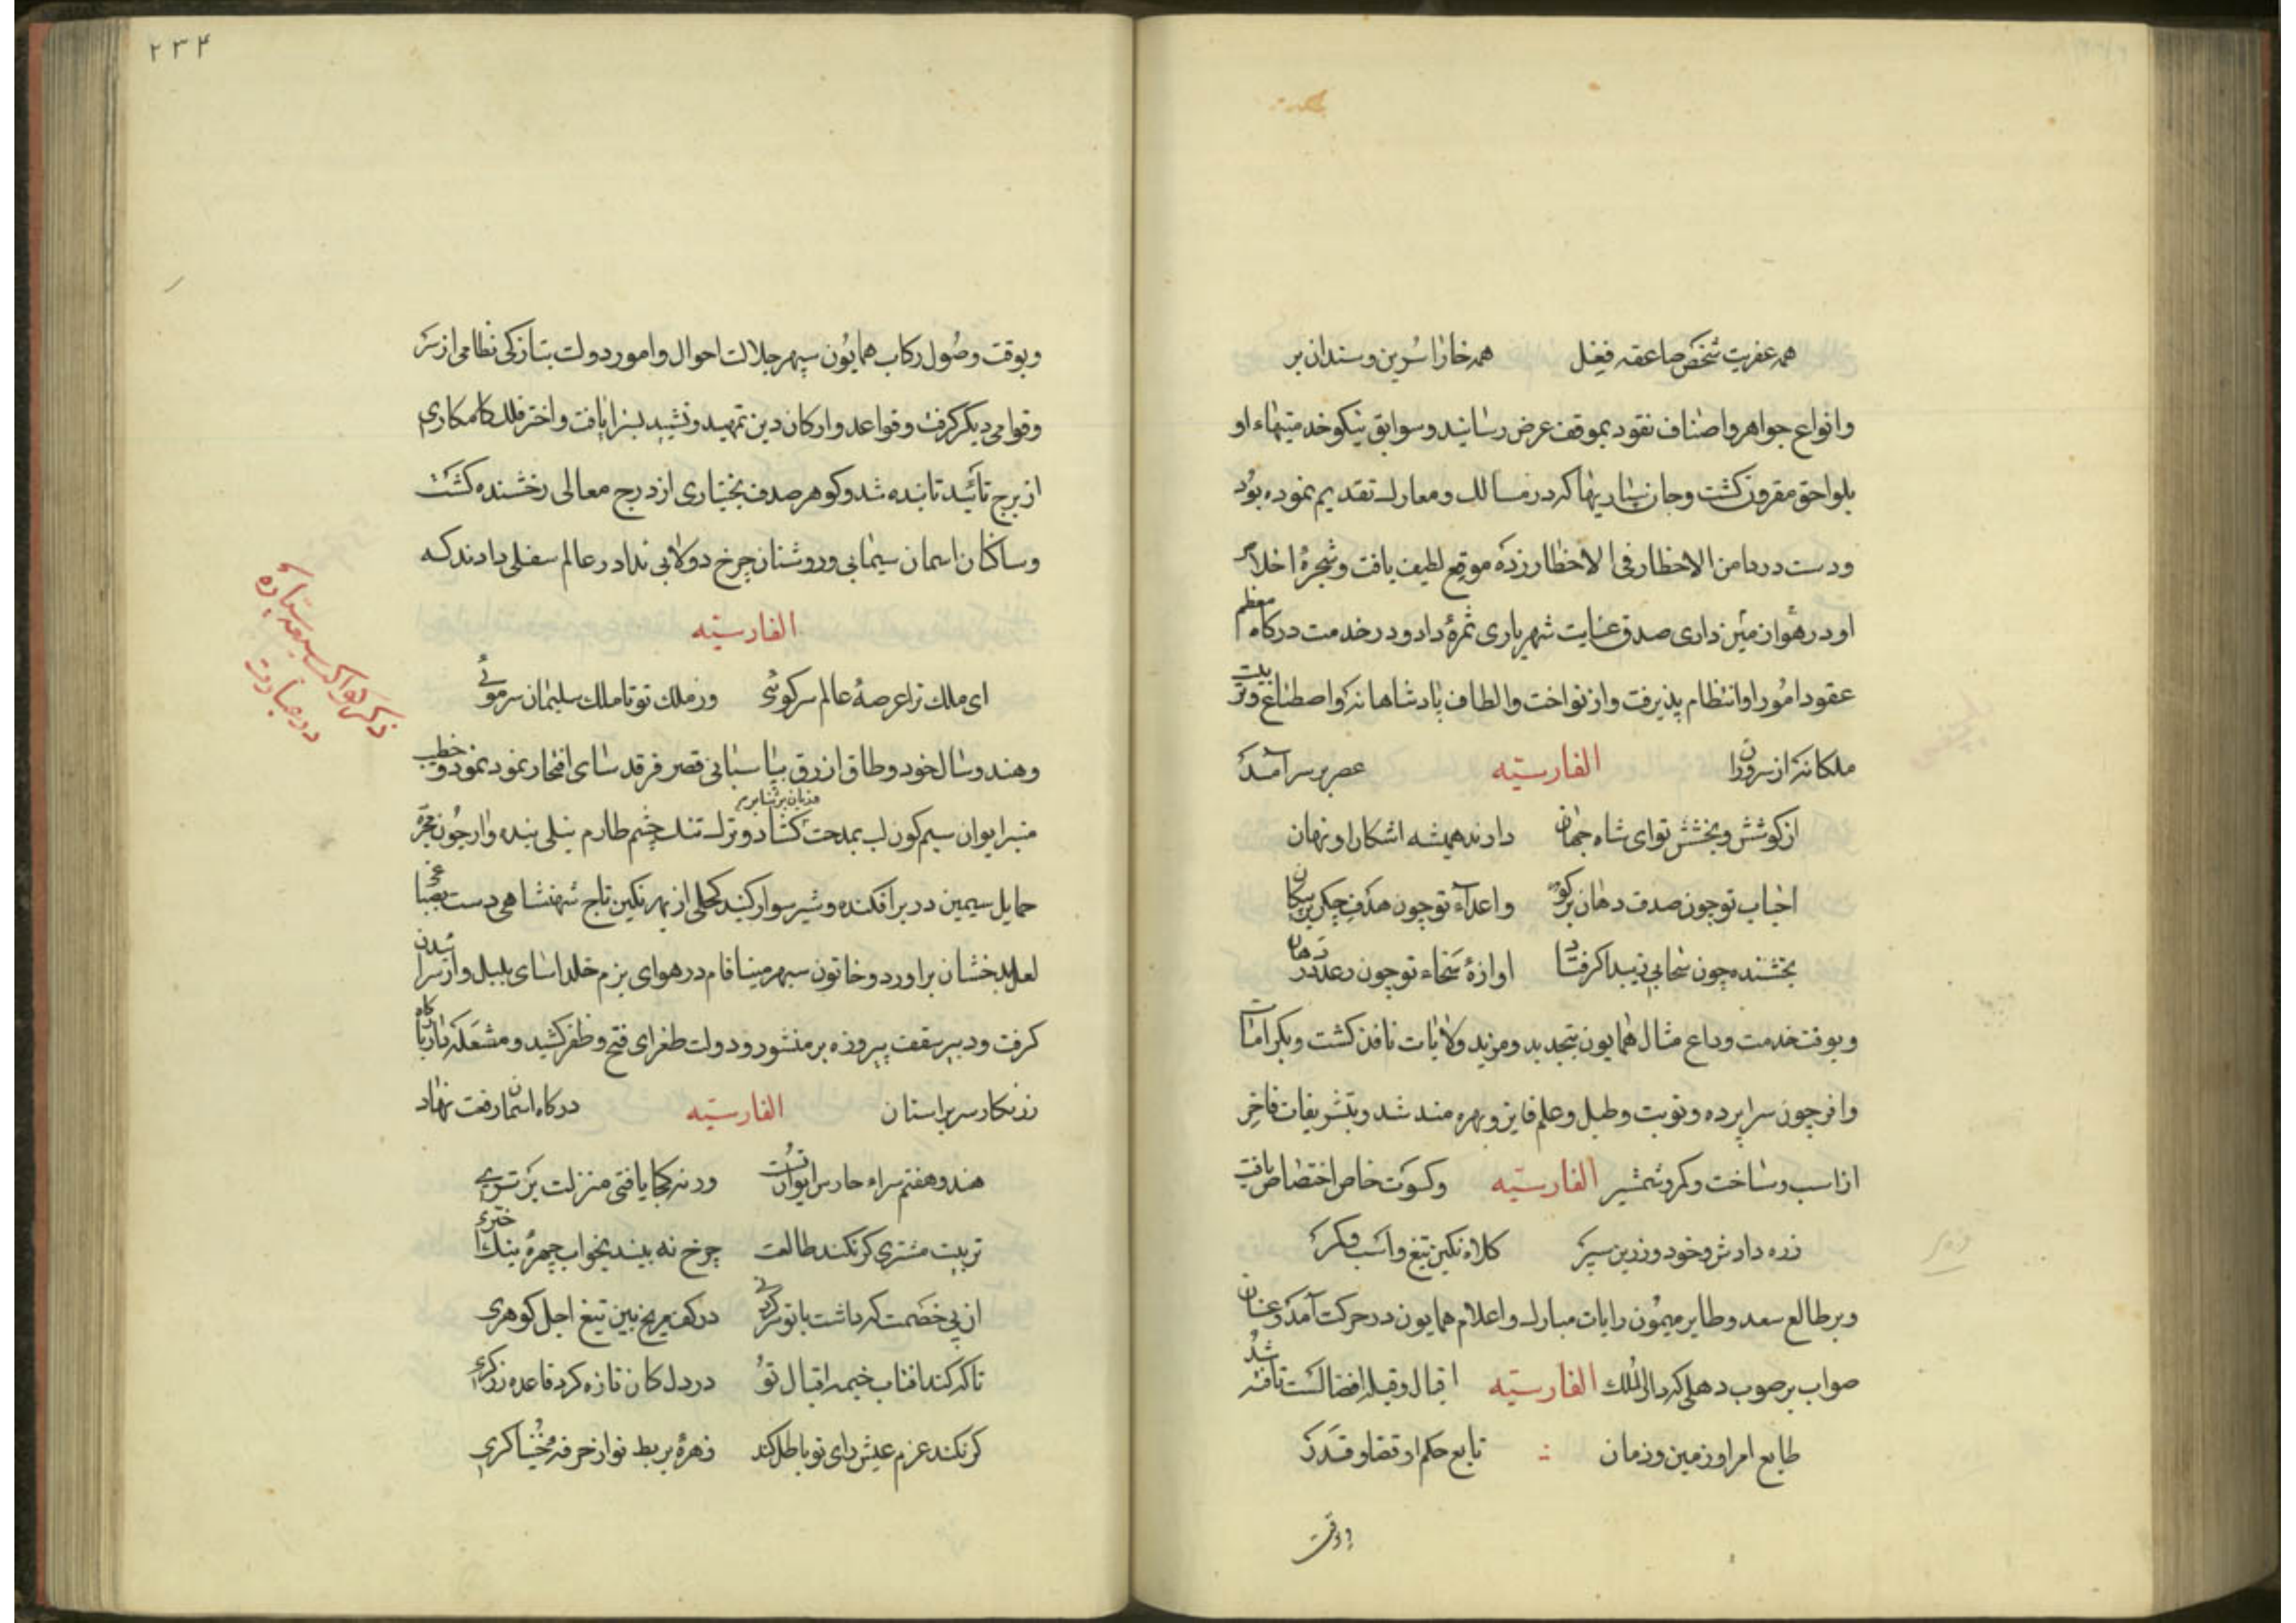 همه عفریت شخص صاعقه فعل همه خارا سرین و سندان بر
وانواع جواهر واصناف نقود بموقف عرض رسانید وسوابق نیکو خدمتیهاء او
بلواحق مقرون کشت وجان سپاریها که در مسالک ومعارک تقدیم نموده بود
ودست در دامن الاخطار فی الاخطار زده موقع لطیف یافت وشجره اخلاص
او در هوا زمین داری صدق عنایت شهریاری ثمره داد ودر خدمت درکاه معظم
عقود امور او انتظام پذیرفت واز نواخت والطاف پادشاهانه واصطناع وتربیت
ملکانه از سروران الفارسیّه عصر بر سر آمد
از کوشش وبخشش تو ای شاه جهان دارند همیشه اشکارا ونهان
احباب تو چون صدف دهان پر کوهر واعداء تو چون هدف جکر پر پیکان
بخشنده چون سحابی اوازهٔ سخاء تو چون رعد در دهان
وبوقت خدمت وداع مثال همایون بتجدید ومزید ولایات نافذ کشت وبکرامات
وافر چون سراپرده ونوبت وطبل وعلم فایز وبهره مند شد وبتشریفات فاخر
از اسب وساخت وکمر وشمشیر الفارسیّه وکسوت خاص اختصاص یافت
زره دادش وخود وزرین سپر کلاه نکین تیغ واسب وکمر
وبر طالع سعد وطایر میمون رایات مبارک واعلام همایون در حرکت آمد وعنان
صواب بر صوب دهلی که دار الملک الفارسیّه اقبال وقبله افضالست تافته شد
طایع امر او زمین وزمان تابع حکم او قضا وقدر
وبوقت
۲۳۴
وبوقت وصول رکاب همایون سپهر جلالت احوال وامور دولت بتازکی نظامی از سر
وقوامی دیکر کرفت وقواعد وارکان دین تمهید وتشیید بسزا یافت واختر فلک کامکاری
از برج تائید تابنده شد وکوهر صدف بختیاری از درج معالی رخشنده کشت
وساکنان اسمان سیمابی وروشنان چرخ دولابی ندا در عالم سفلی دادند که
الفارسیّه
ای ملک ترا عرصهٔ عالم سرکوئی وز ملک تو تا ملک سلیمان سر موئی
ذکر کواکب سبعه سیاره در عبارت
وهندو سال خود وطاق ازرق بپاسبانی قصر فرقد سای افتخار نمود وخطیب
منبر ایوان سیم کون لب بمدحت کشاد وترک تنک چشم طارم نیلی بنده وار چون مجره
حمایل سیمین در بر افکنده وشیر سوار کنبد کحلی از بهر نکین تاج شهنشاهی دست
لعل بدخشان براورد وخاتون سپهر مینا فام در هوای بزم خلد اسای بلبل وار سرائیدن
کرفت ودبیر سقف پیروزه بر منشور دولت طغرای فتح وظفر کشید ومشعله
زرنکار سر براستان الفارسیّه درکاه اسمان رفعت نهاد
هندو هفتم سراء حارس ایوان تست ورنه کجا یافتی منزلت برتری
تربیت مشتری کر نکند طالعت چرخ نه بیند بخواب چهرهٔ نیک اختری
از پی خصمت که داشت با تو در کف مریخ بین تیغ اجل کوهری
تا که کند افتاب خیمه اقبال تو در دل کان تازه کرد قاعده زرکری
کر نکند عزم عیش رای تو باطل کند زهرهٔ بربط نواز حرفه خنیاکری